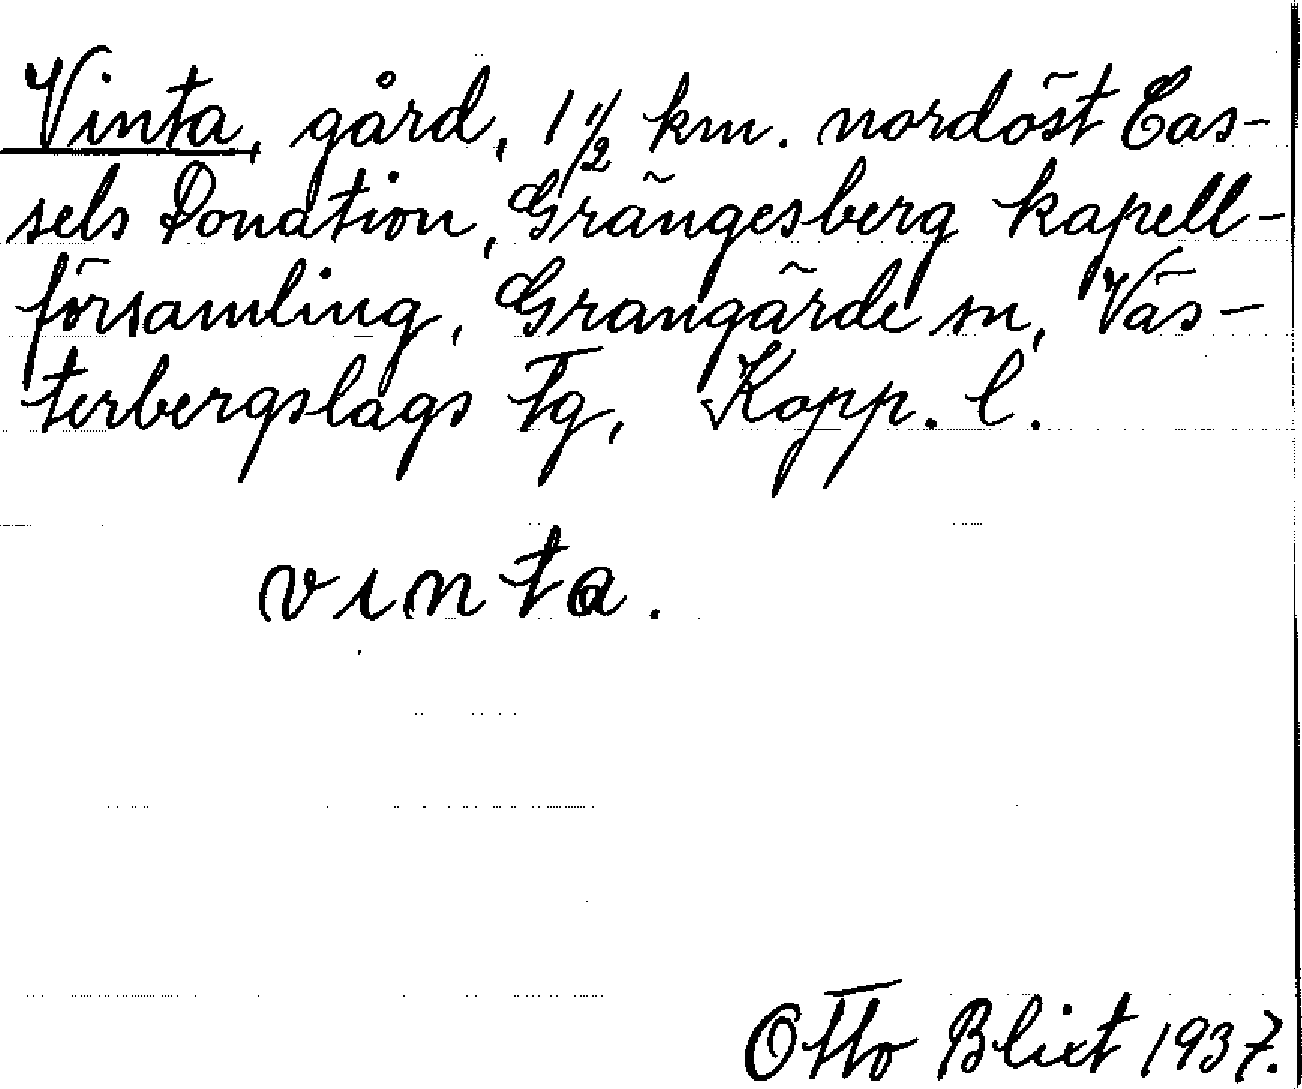 Vinta, gård, 1 1/2 km. nordöst Cas-
sels Donation, Grängesberg kapell-
församling, Grangärde sn, Väs-
terbergslags tg, Kopp. l.
vinta.
Otto Blixt 1937.